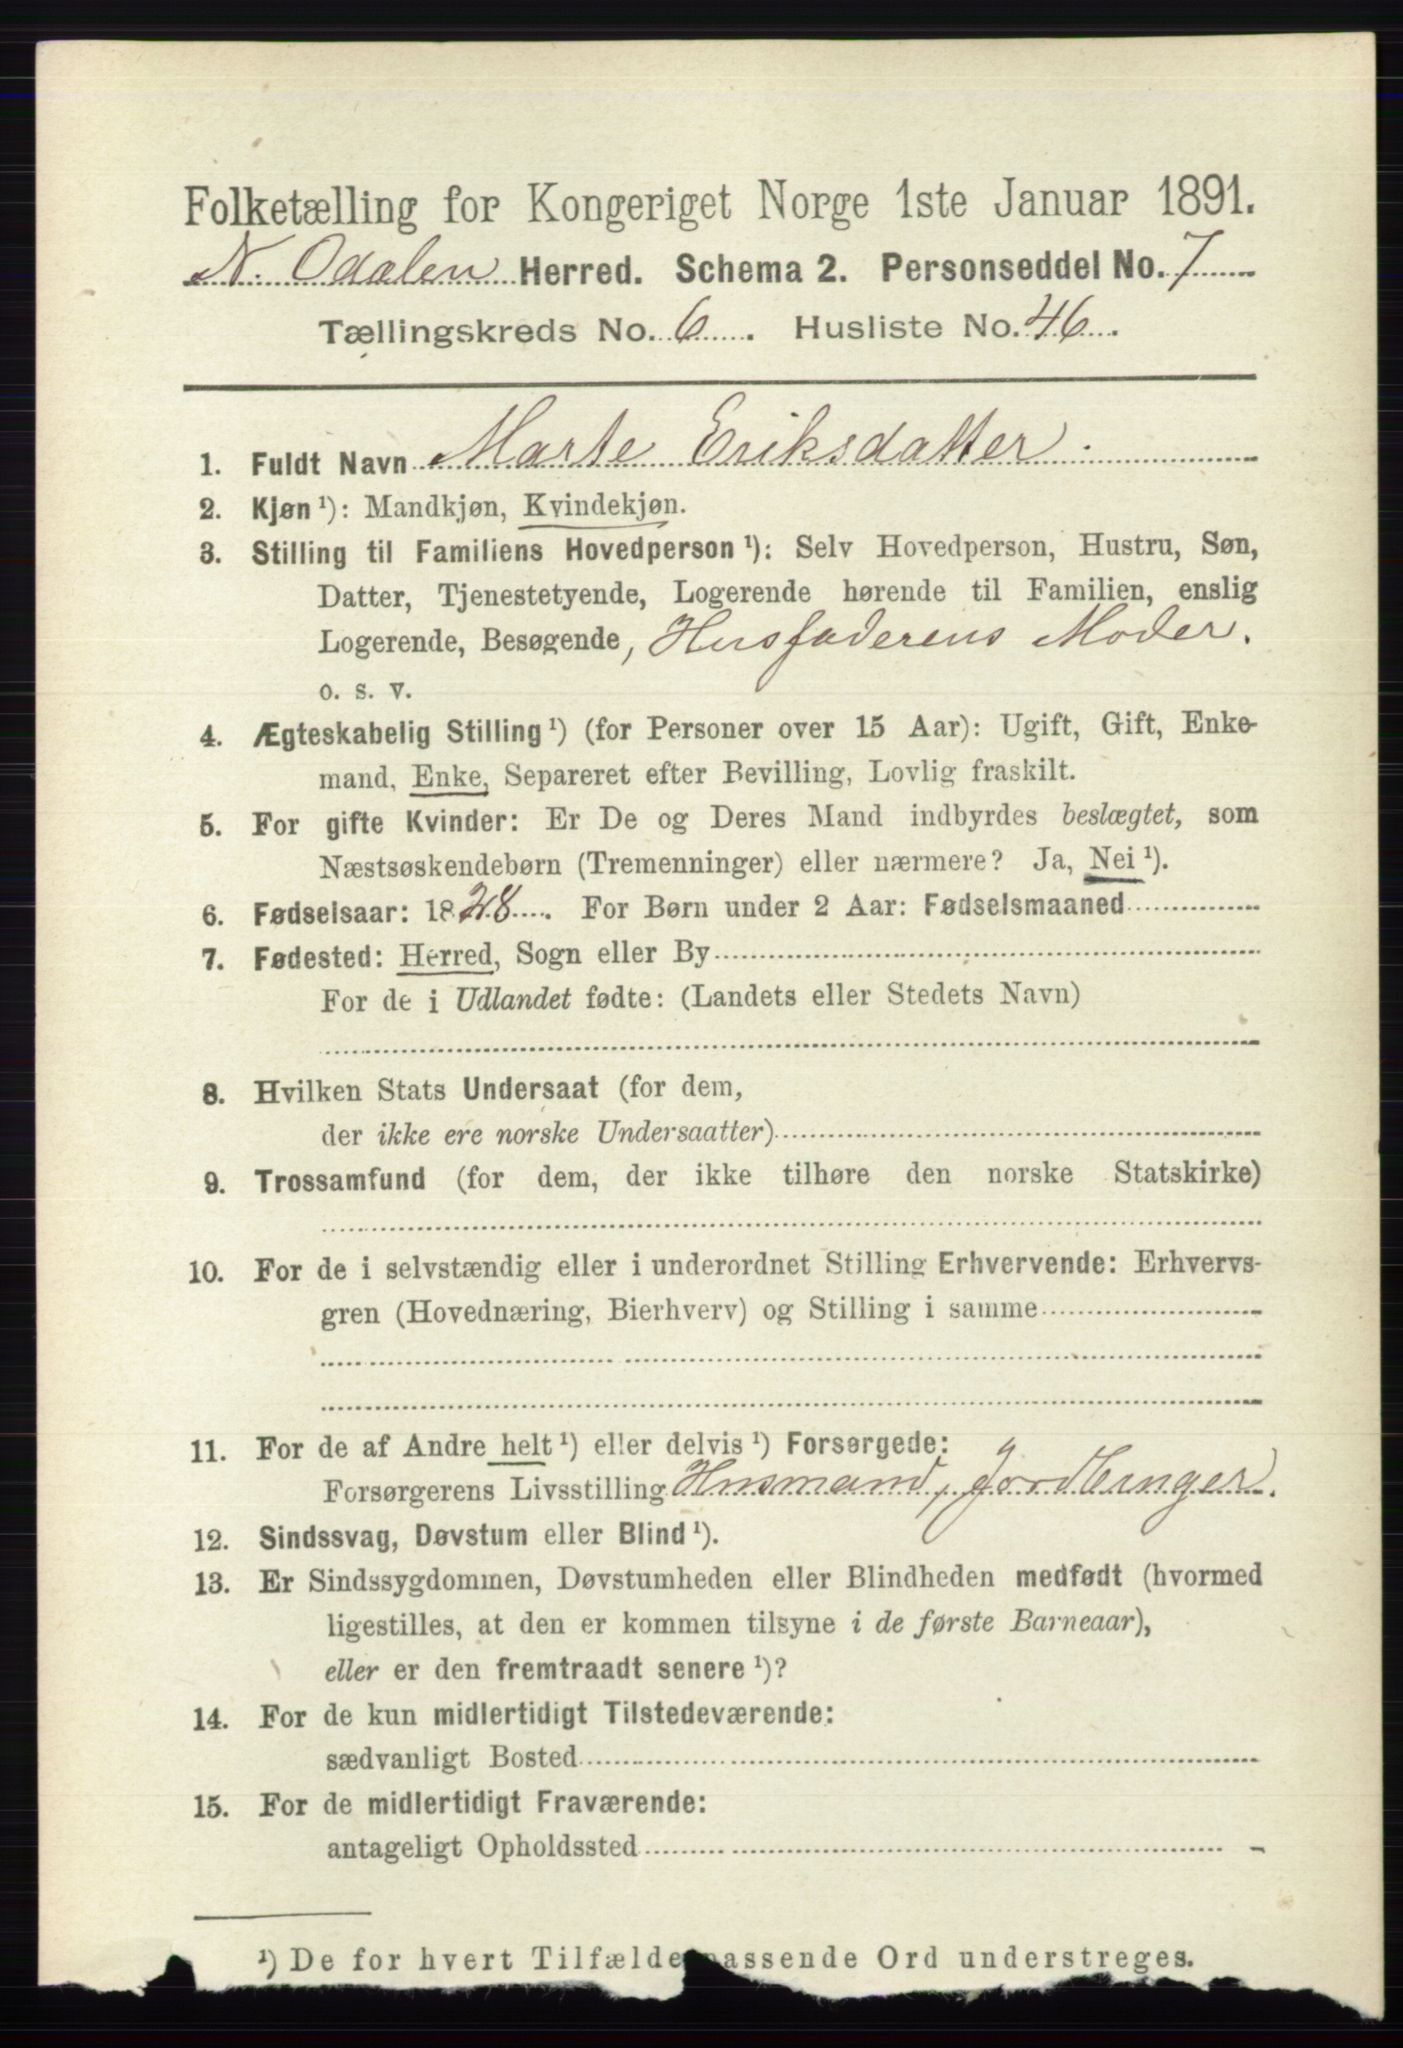 Folketælling for Kongeriget Norge 1ste Januar 1891.
N. Odalen Herred. Schema 2. Personseddel No. 7
Tællingskreds No. 6. Husliste No. 46.
1. Fuldt Navn Marte Eriksdatter.
2. Kjøn ¹): Mandkjøn, Kvindekjøn.
3. Stilling til Familiens Hovedperson ¹): Selv Hovedperson, Hustru, Søn,
Datter, Tjenestetyende, Logerende hørende til Familien, enslig
Logerende, Besøgende, Husfaderens Moder.
o. s. v.
4. Ægteskabelig Stilling ¹) (for Personer over 15 Aar): Ugift, Gift, Enke-
mand, Enke, Separeret efter Bevilling, Lovlig fraskilt.
5. For gifte Kvinder: Er De og Deres Mand indbyrdes beslægtet, som
Næstsøskendebørn (Tremenninger) eller nærmere? Ja, Nei ¹).
6. Fødselsaar: 1828. For Børn under 2 Aar: Fødselsmaaned
7. Fødested: Herred, Sogn eller By
For de i Udlandet fødte: (Landets eller Stedets Navn)
8. Hvilken Stats Undersaat (for dem,
der ikke ere norske Undersaatter)
9. Trossamfund (for dem, der ikke tilhøre den norske Statskirke)
10. For de i selvstændig eller i underordnet Stilling Erhvervende: Erhvervs-
gren (Hovednæring, Bierhverv) og Stilling i samme
11. For de af Andre helt ¹) eller delvis ¹) Forsørgede:
Forsørgerens Livsstilling Husmand, Jordbruger.
12. Sindssvag, Døvstum eller Blind ¹).
13. Er Sindssygdommen, Døvstumheden eller Blindheden medfødt (hvormed
ligestilles, at den er kommen tilsyne i de første Barneaar),
eller er den fremtraadt senere ¹)?
14. For de kun midlertidigt Tilstedeværende:
sædvanligt Bosted
15. For de midlertidigt Fraværende:
antageligt Opholdssted
¹) De for hvert Tilfælde passende Ord understreges.